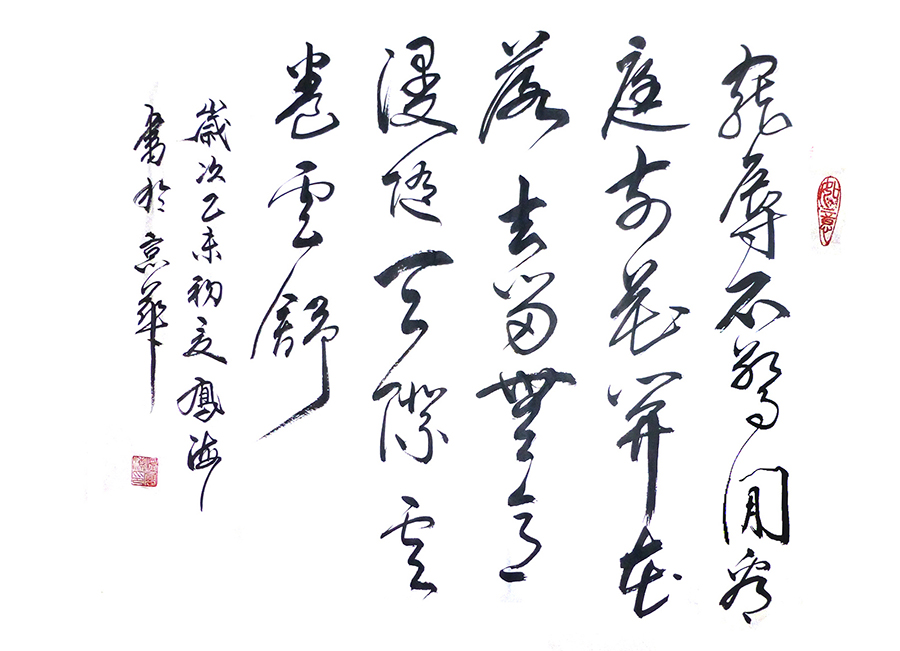 如意
寵辱不驚閒看
庭前花開花
落去留無意
漫隨天際雲
卷雲舒
歲次乙未初夏鳳海
書於京華